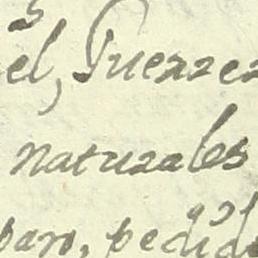 el, Guerrer
naturales
paro, pedid